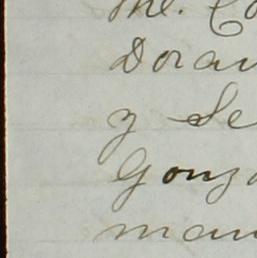 The. Co
Doran
y Se
Gonza
man